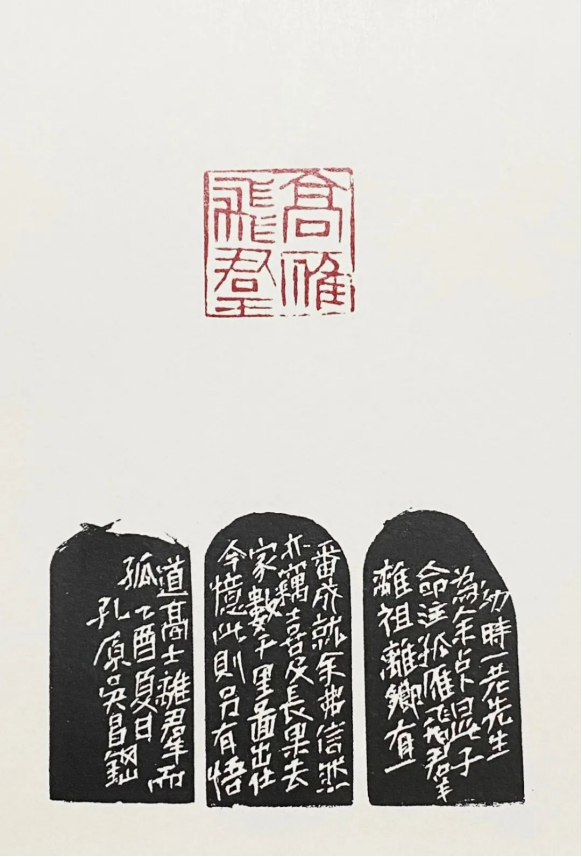 高雁
飛群
幼時一老先生
為余占課子
命注孤雁飛君羊
離祖離鄉有一
番成就余弗信然
亦竊喜及長果去
家數千里而出仕
今憶此則另有悟
道高士離羣而
孤乙酉夏日
孔原吳昌鋼